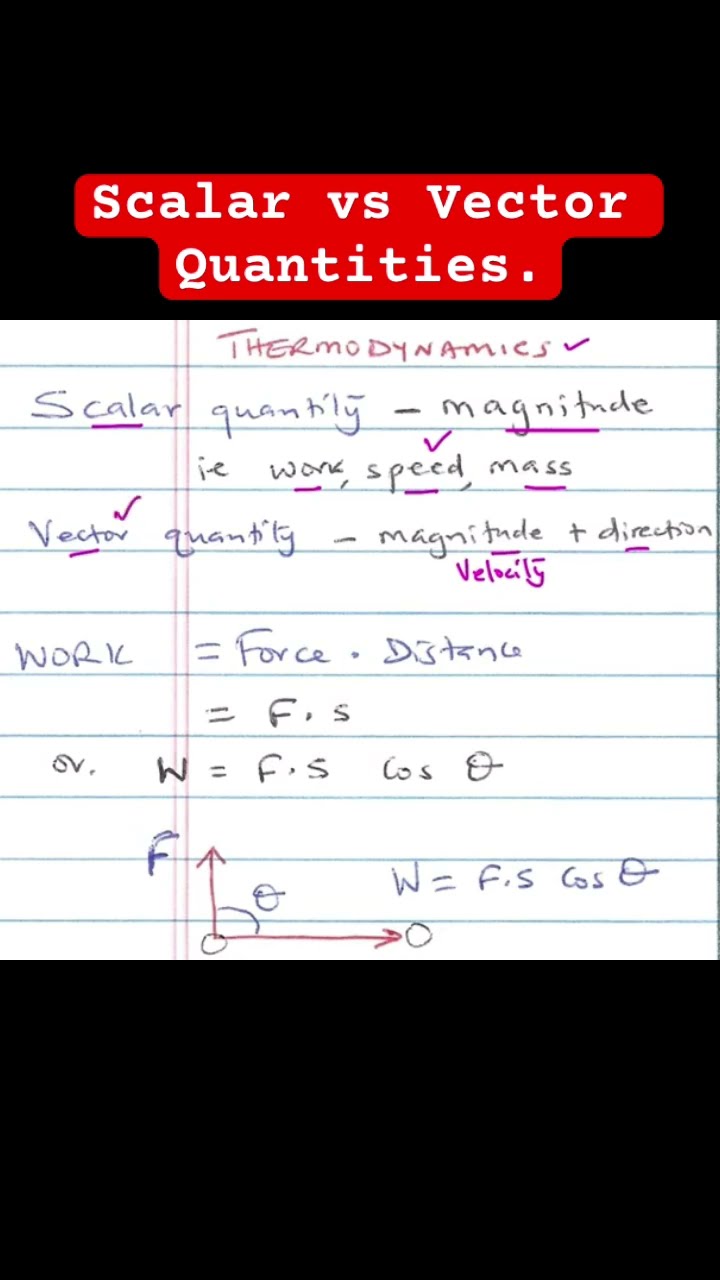 Scalar vs Vector
Quantities.
THERMODYNAMICS ✓
Scalar quantity - magnitude
i.e work, speed, mass
Vector quantity - magnitude + direction
Velocity
WORK = Force . Distance
= F. s
or. W = F.s Cos θ
F
θ
W = F.s Cos θ